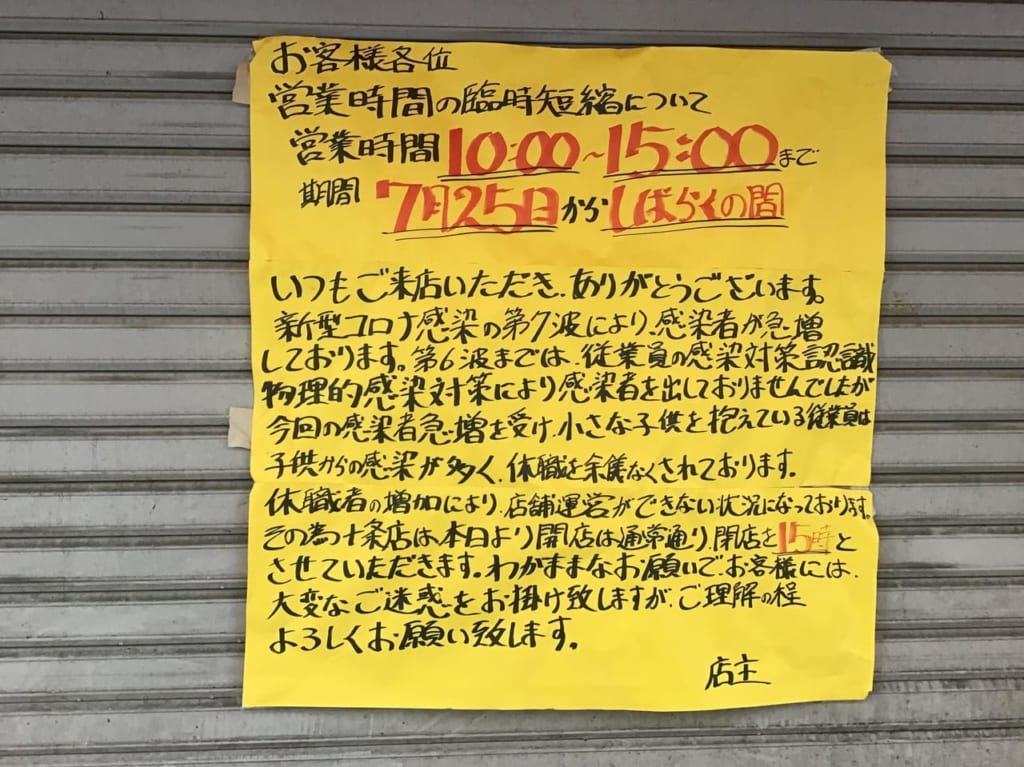 お客様各位
営業時間の臨時短縮について
営業時間10:00~15:00まで
期間 7月25日からしばらくの間
いつもご来店いただき、ありがとうございます。
新型コロナ感染の第7波により、感染者が急増
しております。第6波までは、従業員の感染対策認識
物理的感染対策により感染者を出しておりませんでしたが
今回の感染者急増を受け、小さな子供を抱えている従業員は
子供からの感染が多く、休職を余儀なくされております。
休職者の増加により、店舗運営ができない状況になっております。
その為十条店は、本日より開店は通常通り、閉店を15時と
させていただきます。わがままなお願いで、お客様には、
大変なご迷惑をお掛け致しますが、ご理解の程
よろしくお願い致します。
店主